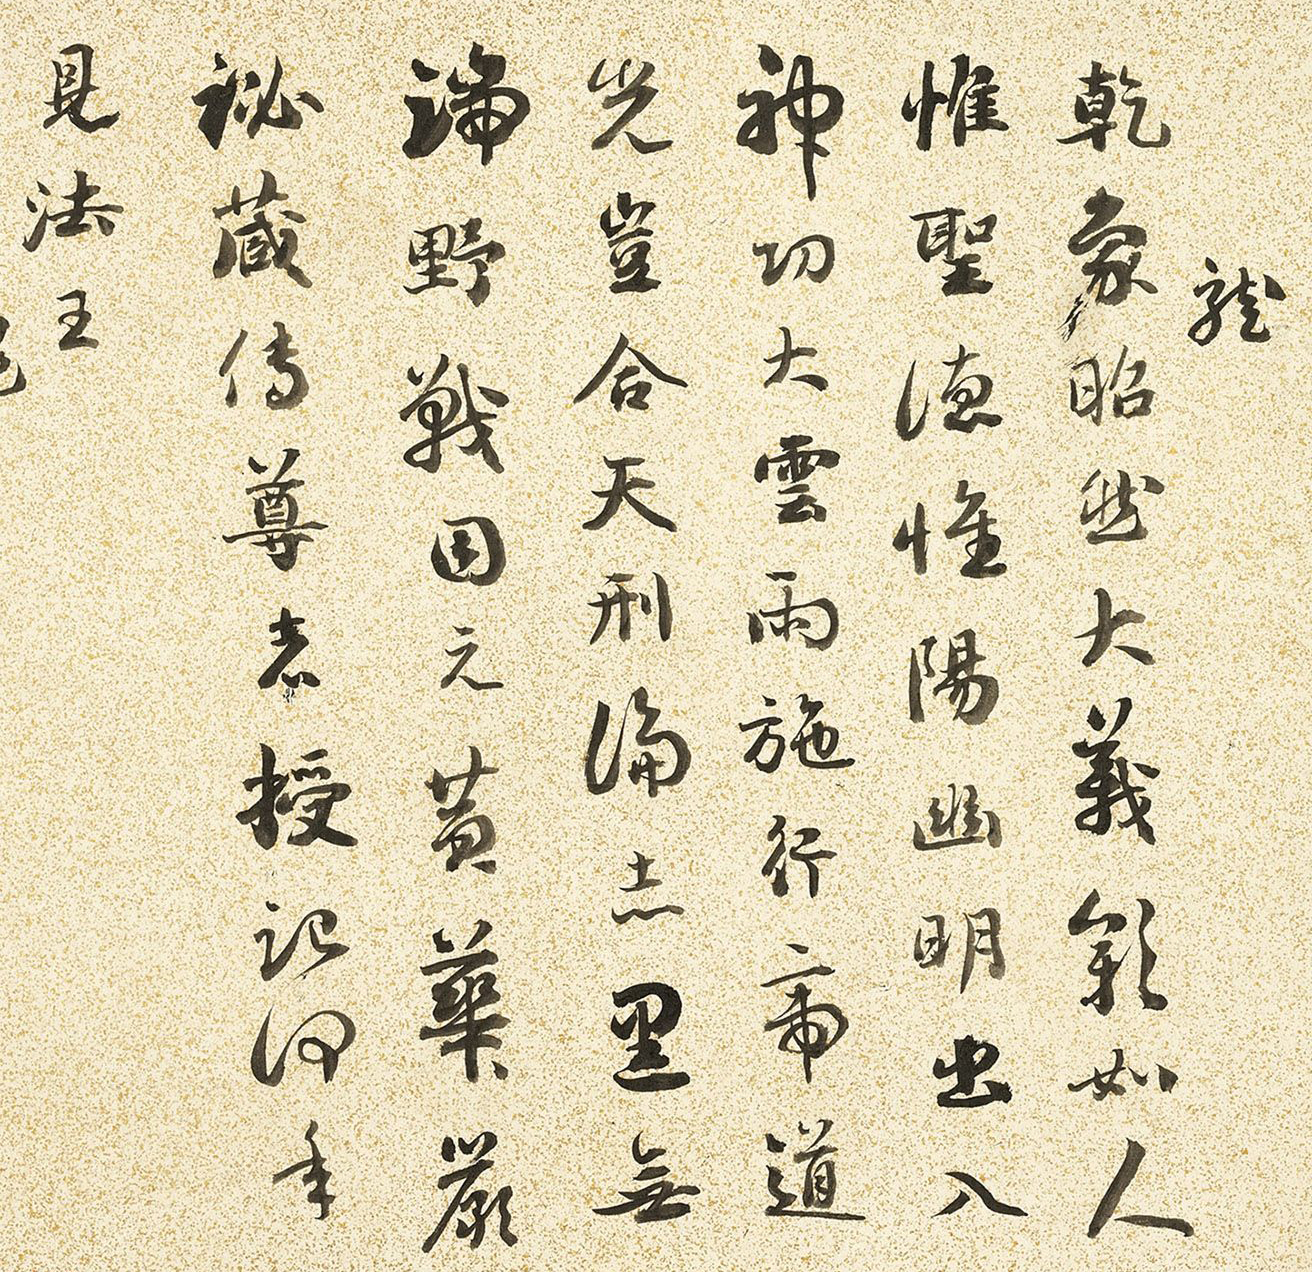 龍
乾象昭然大義彰如人
惟聖德惟陽幽明出入
神功大雲雨施行帝道
光豈合天刑淪志里無
端野戰困元黃華嚴
秘藏傳尊者授記何年
見法王